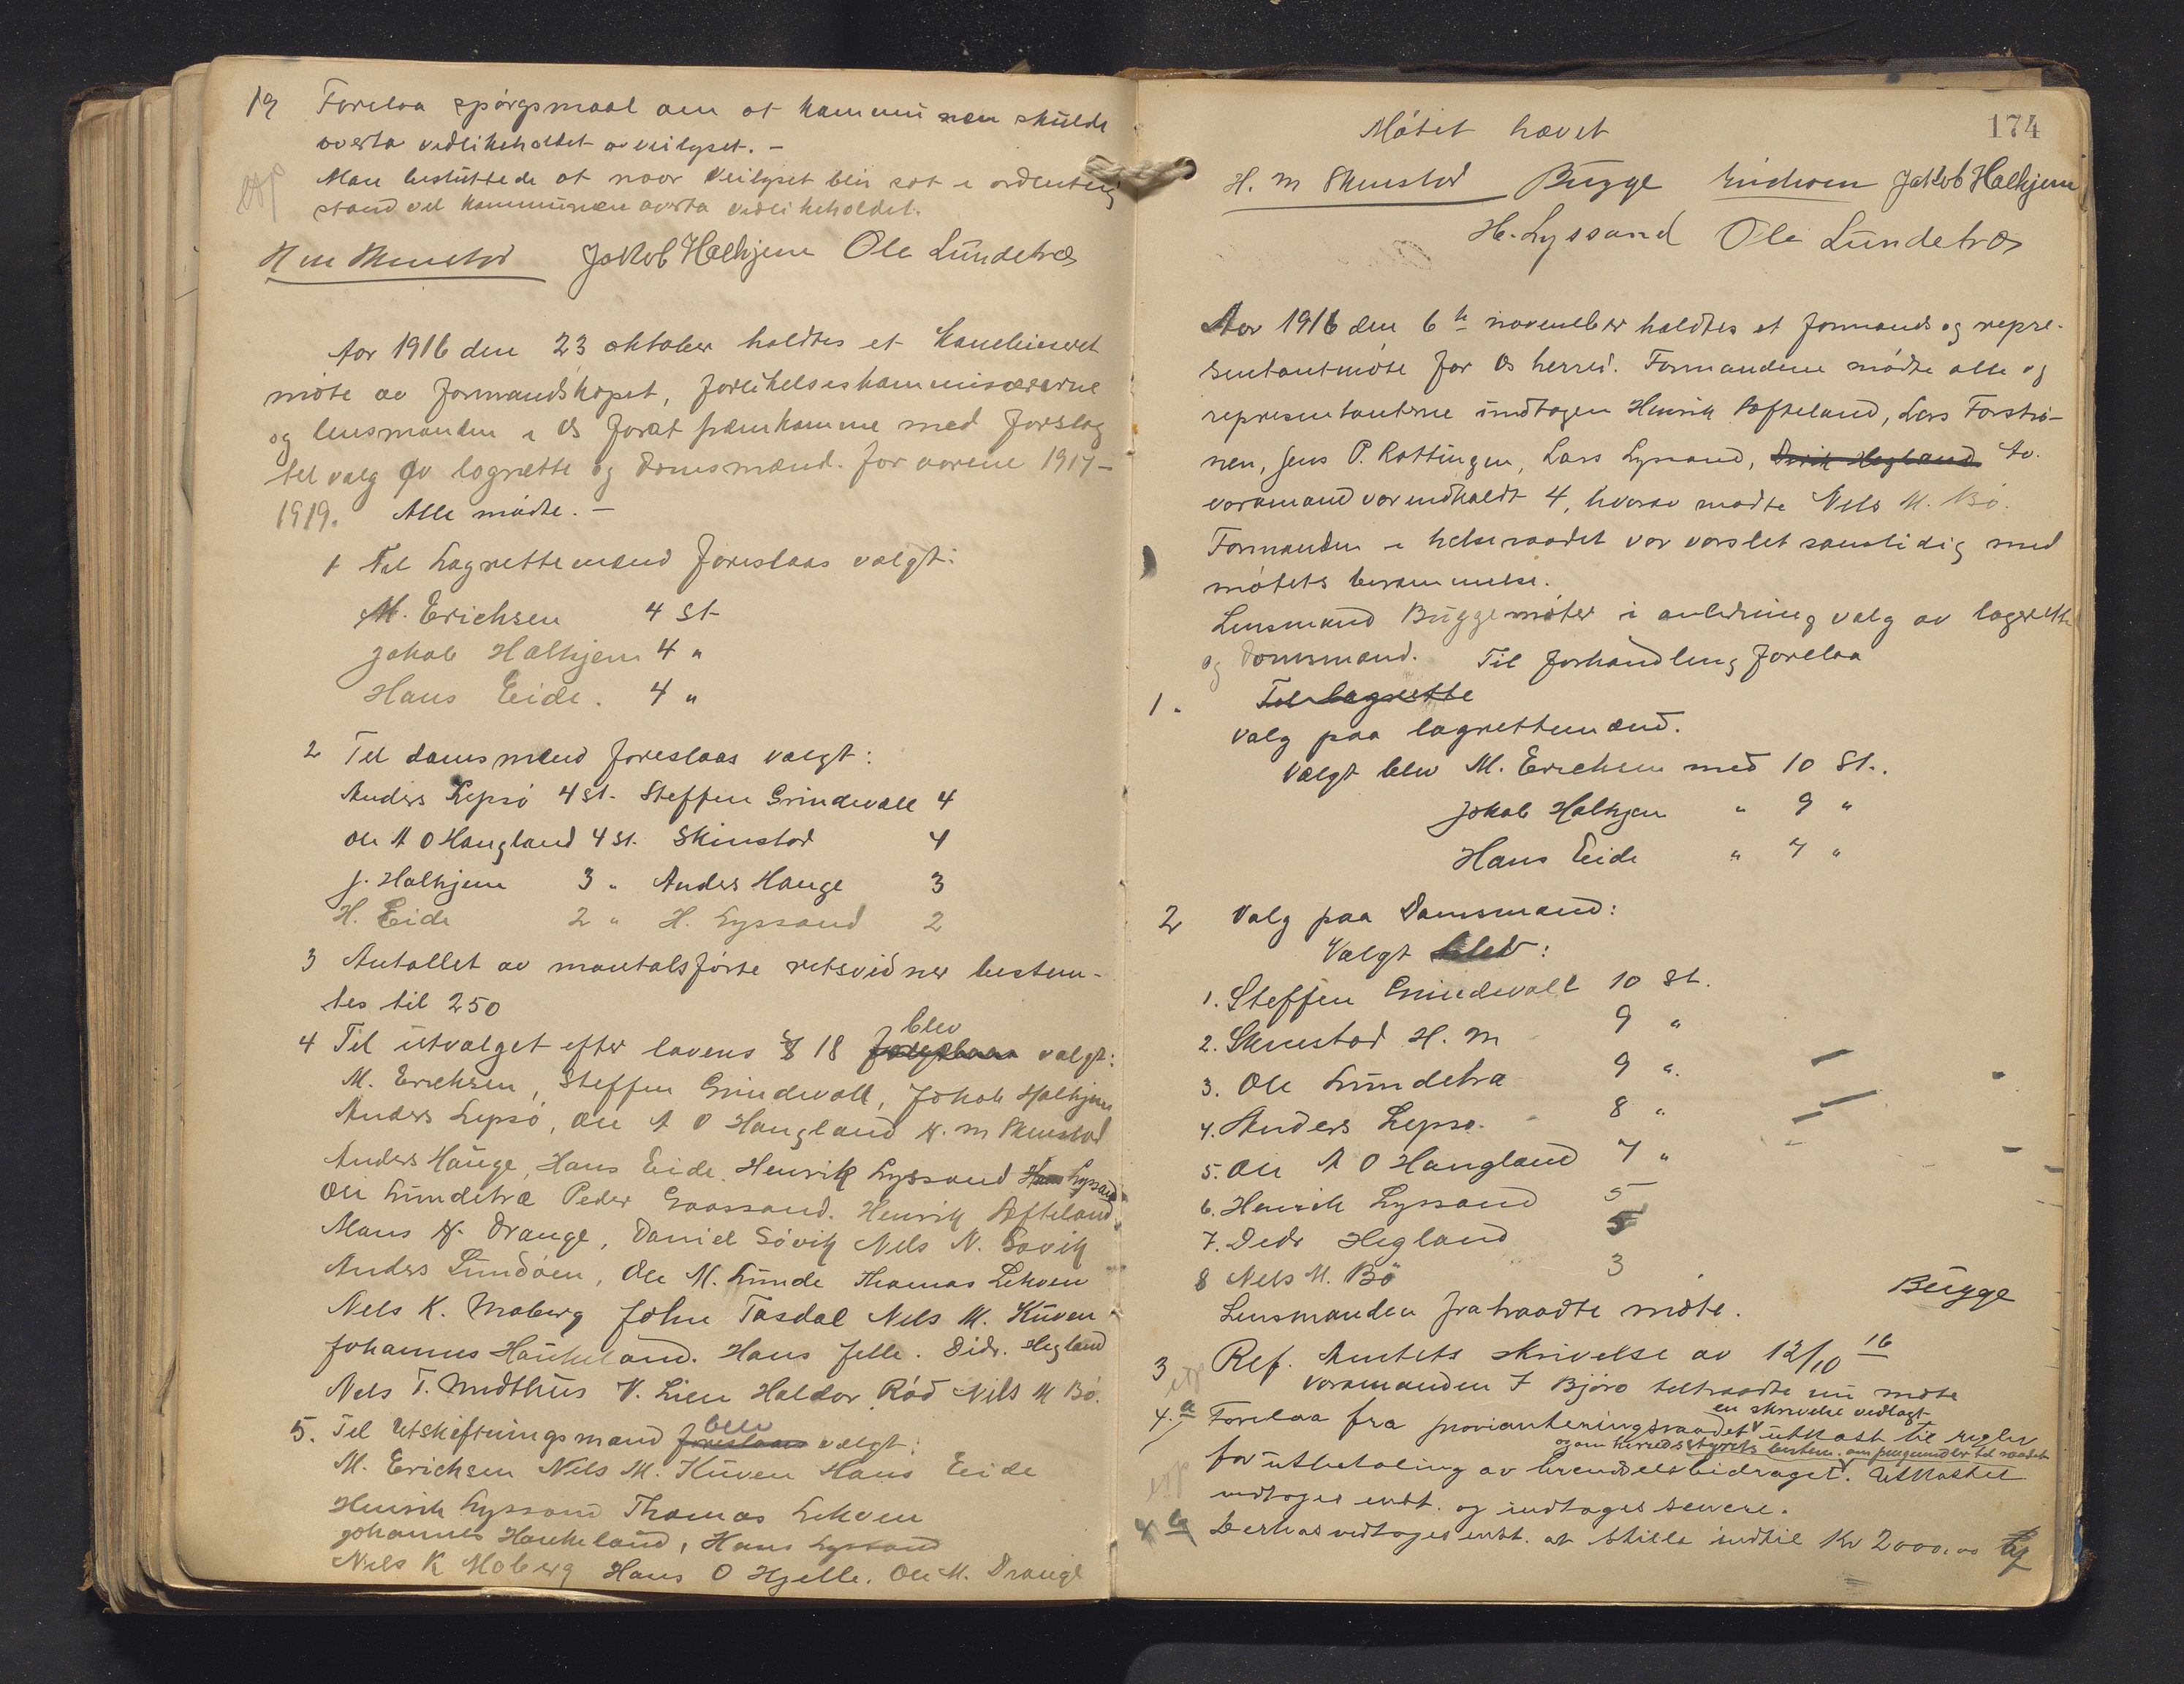 19 Forelaa spörgsmaal om at kommunen skulde
overta vedlikeholdet av veilyset. -
Man besluttede at naar veilyset blir sat i ordentlig
stand vil kommunen overta vedlikeholdet.
exp
H m Skinstad Jakob Halhjem Ole Lundetræ
Aar 1916 den 23 oktober holdtes et kombineret
möte av formandskapet, forlikelseskommisærerne
og lensmanden i Os forat fremkomme med forslag
til valg av lagrette og domsmænd for aarene 1917-
1919. Alle mödte. -
1 Til Lagrettemænd foreslaas valgt:
M. Erichsen 4 St
Jakob Halhjem 4 "
Hans Eide. 4 "
2 Til domsmænd foreslaas valgt:
Anders Lepsö 4 St. Steffen Grindevall 4
Ole A O Haugland 4 St. Skinstad 4
J. Halhjem 3 " Anders Hauge 3
H. Eide 2 " H. Lyssand 2
3 Antallet av mantalsförte retsvidner bestem-
tes til 250
4 Til utvalget efter lovens § 18 foreslaas blev valgt:
M. Erichsen, Steffen Grindevall, Jakob Halhjem
Anders Lepsö, Ole A O Haugland H. m Skinstad
Anders Hauge, Hans Eide. Henrik Lyssand Hans Lyssand
Ole Lundetræ Peder Gaassand. Henrik Søfteland
Mons H. Drange, Daniel Sövik Nels N. Sövik
Anders Lundöen, Ole M. Lunde Thomas Lekven
Nels K. Moberg John Tøsdal Nels M. Kuven
Johannes Haukeland. Hans Jelle. Didr. Hegland
Nels T. Midthus V. Lien Haldor Röd Nils M Bö.
5. Til Utskiftningsmænd foreslaaes blev valgt:
M. Erichsen Nils M. Kuven Hans Eide
Henrik Lyssand Thomas Lekven
Johannes Haukeland, Hans Lyssand
Nils K Moberg Hans O Hjelle. Ole M. Drange
174
Mötet hævet
H. m Skinstad Bugge Erichsen Jakob Halhjem
H. Lyssand Ole Lundetræ
Aar 1916 den 6te november holdtes et formands og repre-
sentantmöte for Os herred. Formændene mödte alle og
representanterne undtagen Henrik Søfteland, Lars Forströ-
nen, Jens P. Røttingen, Lars Lyssand, Didrik Hegland Av
varamænd var indkaldt 4, hvorav mødte Nils M. Bö.
Formanden i helseraadet var varslet samtidig med
mötets berammelse.
Lensmand Bugge möter i anledning valg av lagrette
og domsmænd. Til forhandling forelaa
1. Til lagrette
valg paa lagrettemænd.
Valgt blev M. Erichsen med 10 St.
Jakob Halhjem " 9 "
Hans Eide " 7 "
2 Valg paa Domsmænd:
Valgt blev:
1. Steffen Grindevall 10 St.
2. Skinstad H. m 9 "
3. Ole Lundetræ 9 "
4. Anders Lepsø. 8 "
5. Ole A O Haugland 7 "
6. Henrik Lyssand 5
7. Didr Hegland 5
8 Nels M. Bö 3
Lensmanden fratraadte møte. Bugge
3 Ref. Amtets skrivelse av 12/10 16
Varamanden J Björo tiltraadte nu møte
exp
en skrivelse vedlagt
4. a Forelaa fra provianteringsraadet utkast til regler
og om herredsstyrets bestem. om pengemidler til raadet
for utbetaling av brendselsbidraget. Utkastet
exp
vedtoges enst. og indtages senere.
4 b Derhos vedtoges enst. at stille indtil Kr 2000.00